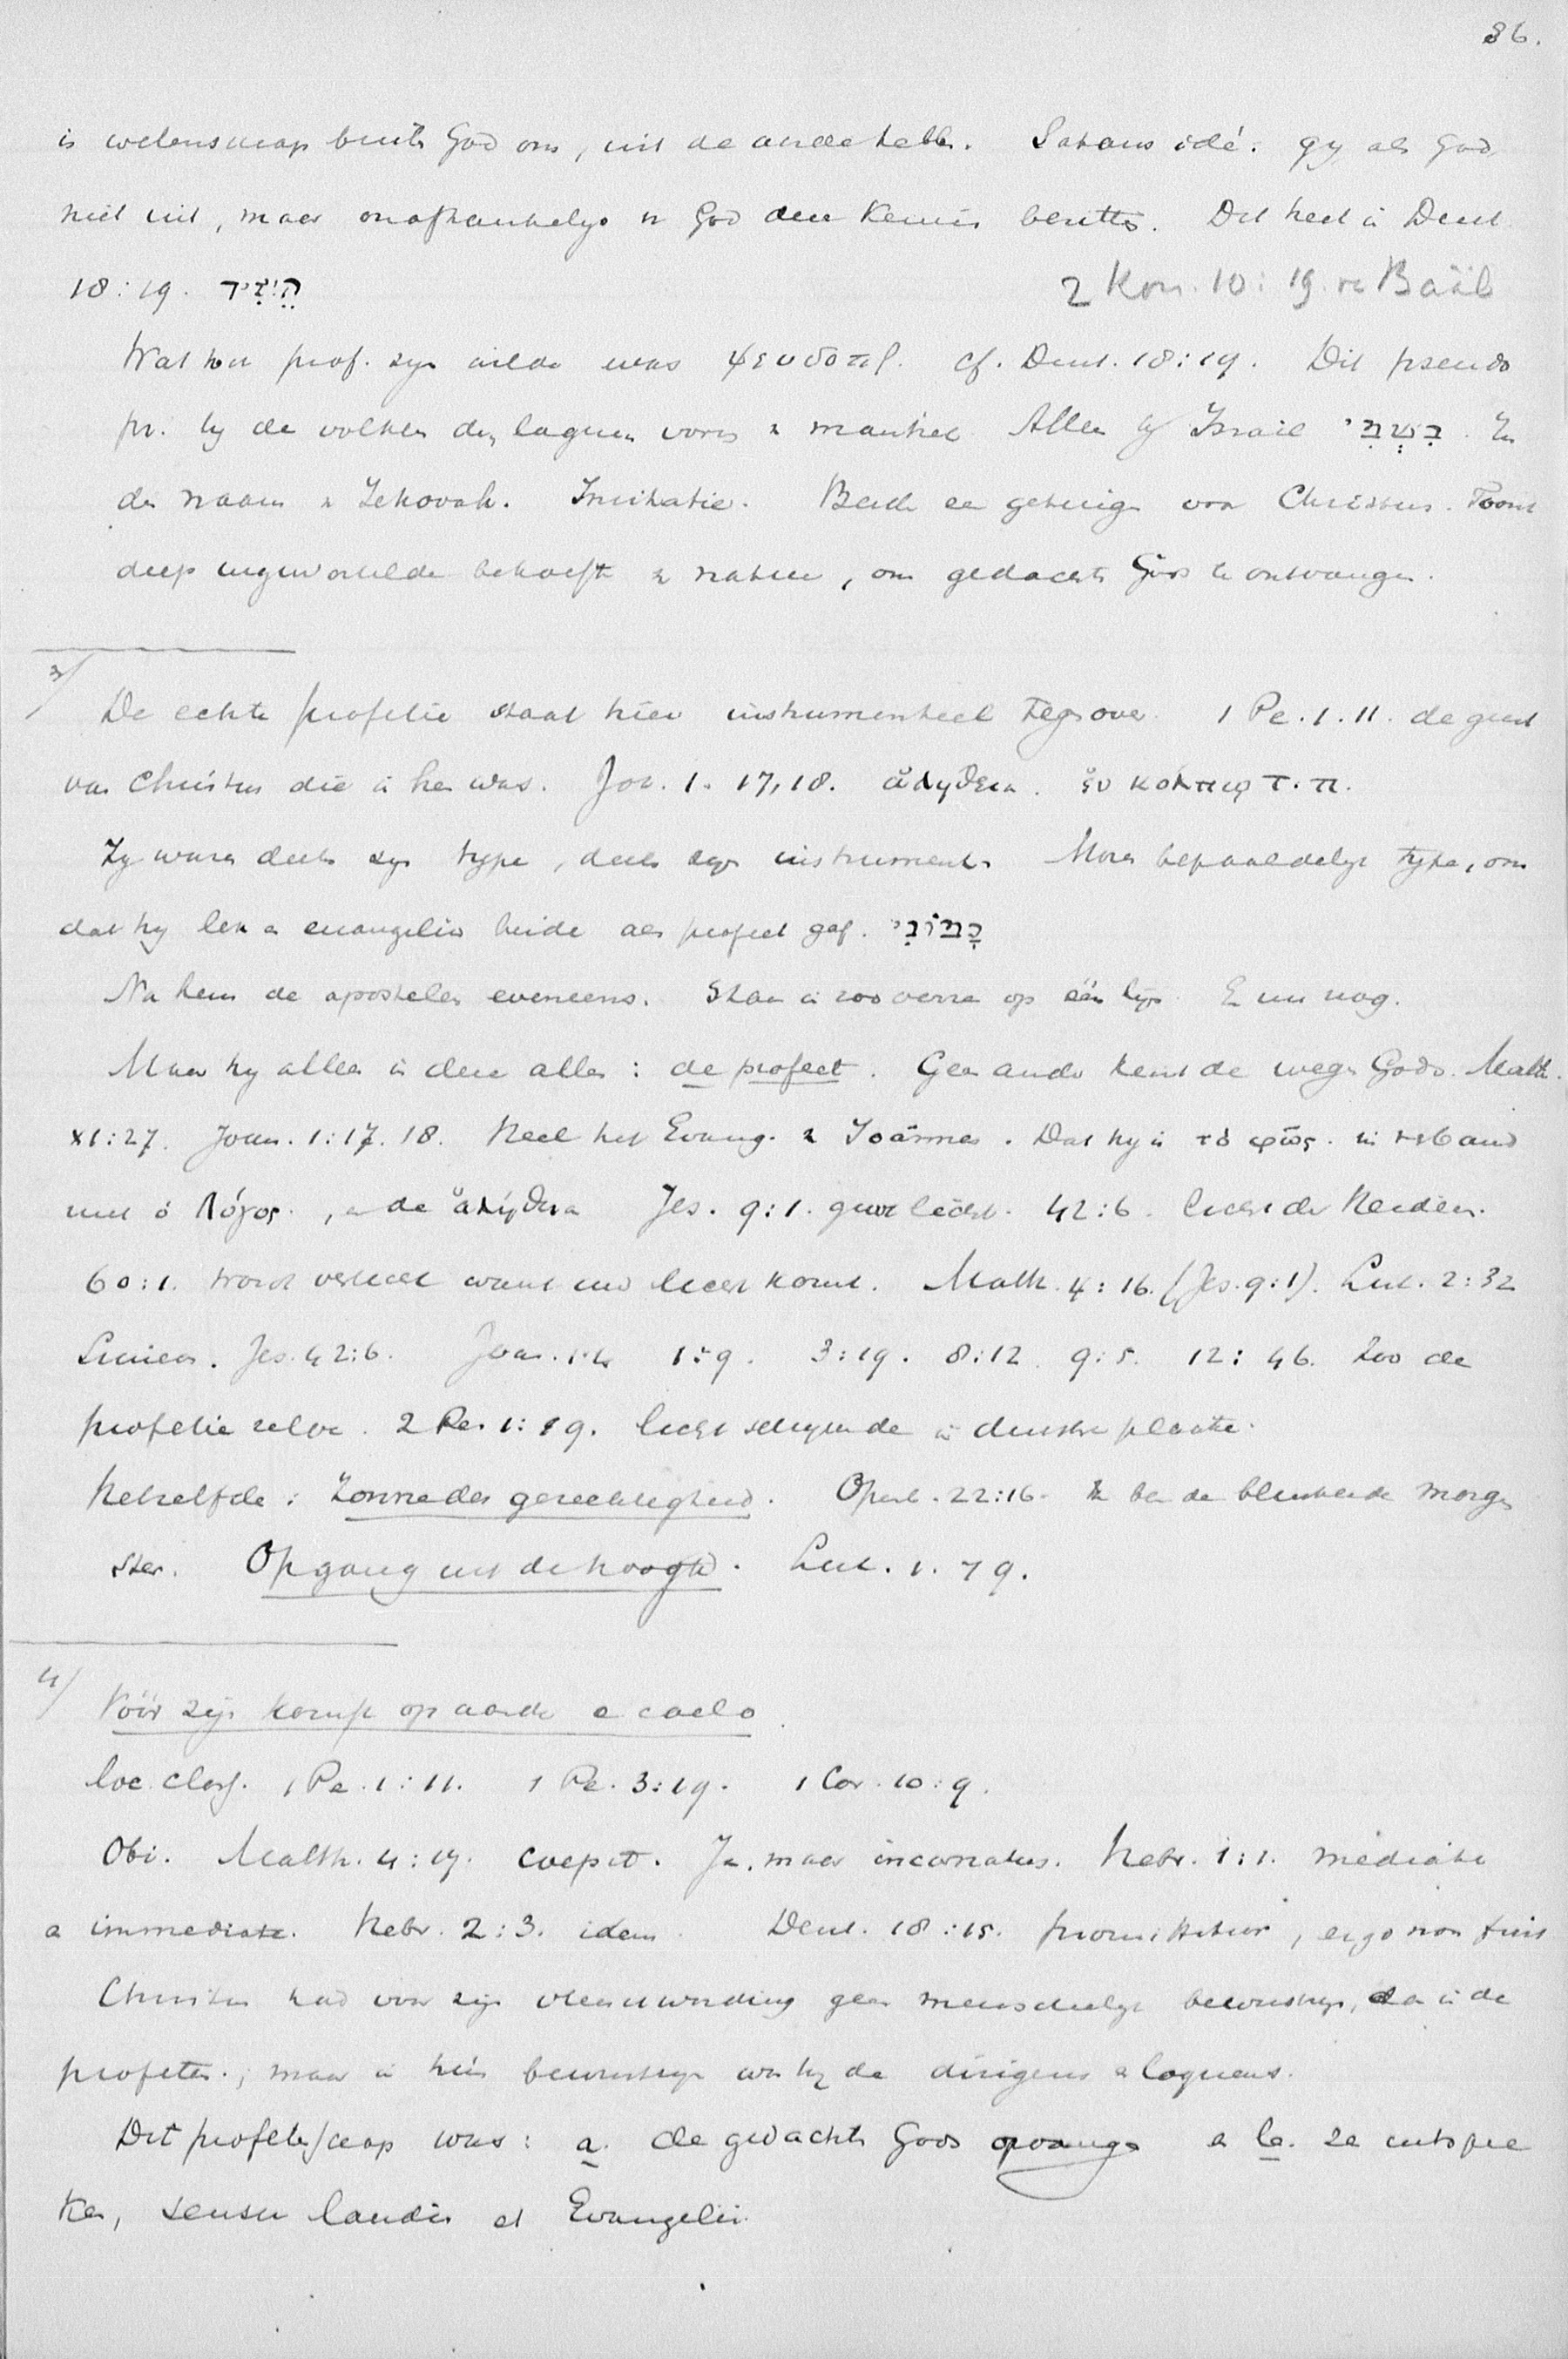 36.
is wetenschap buiten God om, uit de ander hebben. Satans idé. gy als God
niet uit, maar onafhankelyk v. God den Kennis bezitten. Dit heet in Deut
18:19. הֵזִיד 2 Kon. 10:19. v. Baäl
Wat hun prof. zyn wilde was ψευδοπρ. cf. Deut. 18:19. Dit pseudo
pr. by de volken den laguen vorm v. mantiek Alleen by Israel בִּשְׁמִי. In
den naam v. Jehovah. Imitatie. Beide een getuige voor Christus. Toont
diep ingewortelde behoefte v. natuur, om gedachte Gods te ontvangen.
3/
De echte profetie staat hier instrumenteel tegenover. 1 Pe. 1. 11. de geest
van Christus die in hen was. Joh. 1. 17, 18. ἀλήθεια. ἐν κόλπῳ τ. π.
Zy waren deels zyn type, deels zyn instrument. Mozes bepaaldelyk type, om
dat hy lex en evangelie beide als profeet gaf. כָּמוֹנִי
Na hem de apostelen eveneens. Staan in zooverre op één lyn. En nu nog.
Maar hy alleen in deze allen: de profeet. Geen ander kent de wegen Gods. Math.
XI:27. Joan. 1:17. 18. Heel het Evang. v. Joännes. Dat hy is τὸ φῶς. in verband
met ὁ Λόγος., en de ἀλήθεια Jes. 9:1. groot licht. 42:6. licht der Heiden.
60:1. word verlicht want uw licht komt. Math. 4:16. (Jes. 9:1). Luc. 2:32
Simeon. Jes. 42:6. Joan. 1:4 1:9. 3:19. 8:12. 9:5. 12:46. Zoo de
profetie zelve. 2 Pe. 1:19. licht schynende in duistere plaatse.
Hetzelfde: Zonne der gerechtigheid. Openb. 22:16. Ik ben de blinkende morgen
ster. Opgang uit de hoogte. Luc. 1. 79.
4/
Vóór zyn komst op aarde e caelo.
loc. class. 1 Pe. 1:11. 1 Pe. 3:19. 1 Cor. 10:9.
Obi. Matth. 4:17. coepit. Ja, maar incarnatus. Hebr. 1:1. mediate
en immediate. Hebr. 2:3. idem. Deut. 18:15. promittitur, ergo non fuit
Christus had voor zyn vleeschwording geen menschelyk bewustzyn, dan in de
profeten; maar in hun bewustzyn was hy de dirigens en loquens.
Dit profeetschap was: a. de gedachte Gods opvangen en b. ze uitspre
ken, sensu laudis et Evangelii.